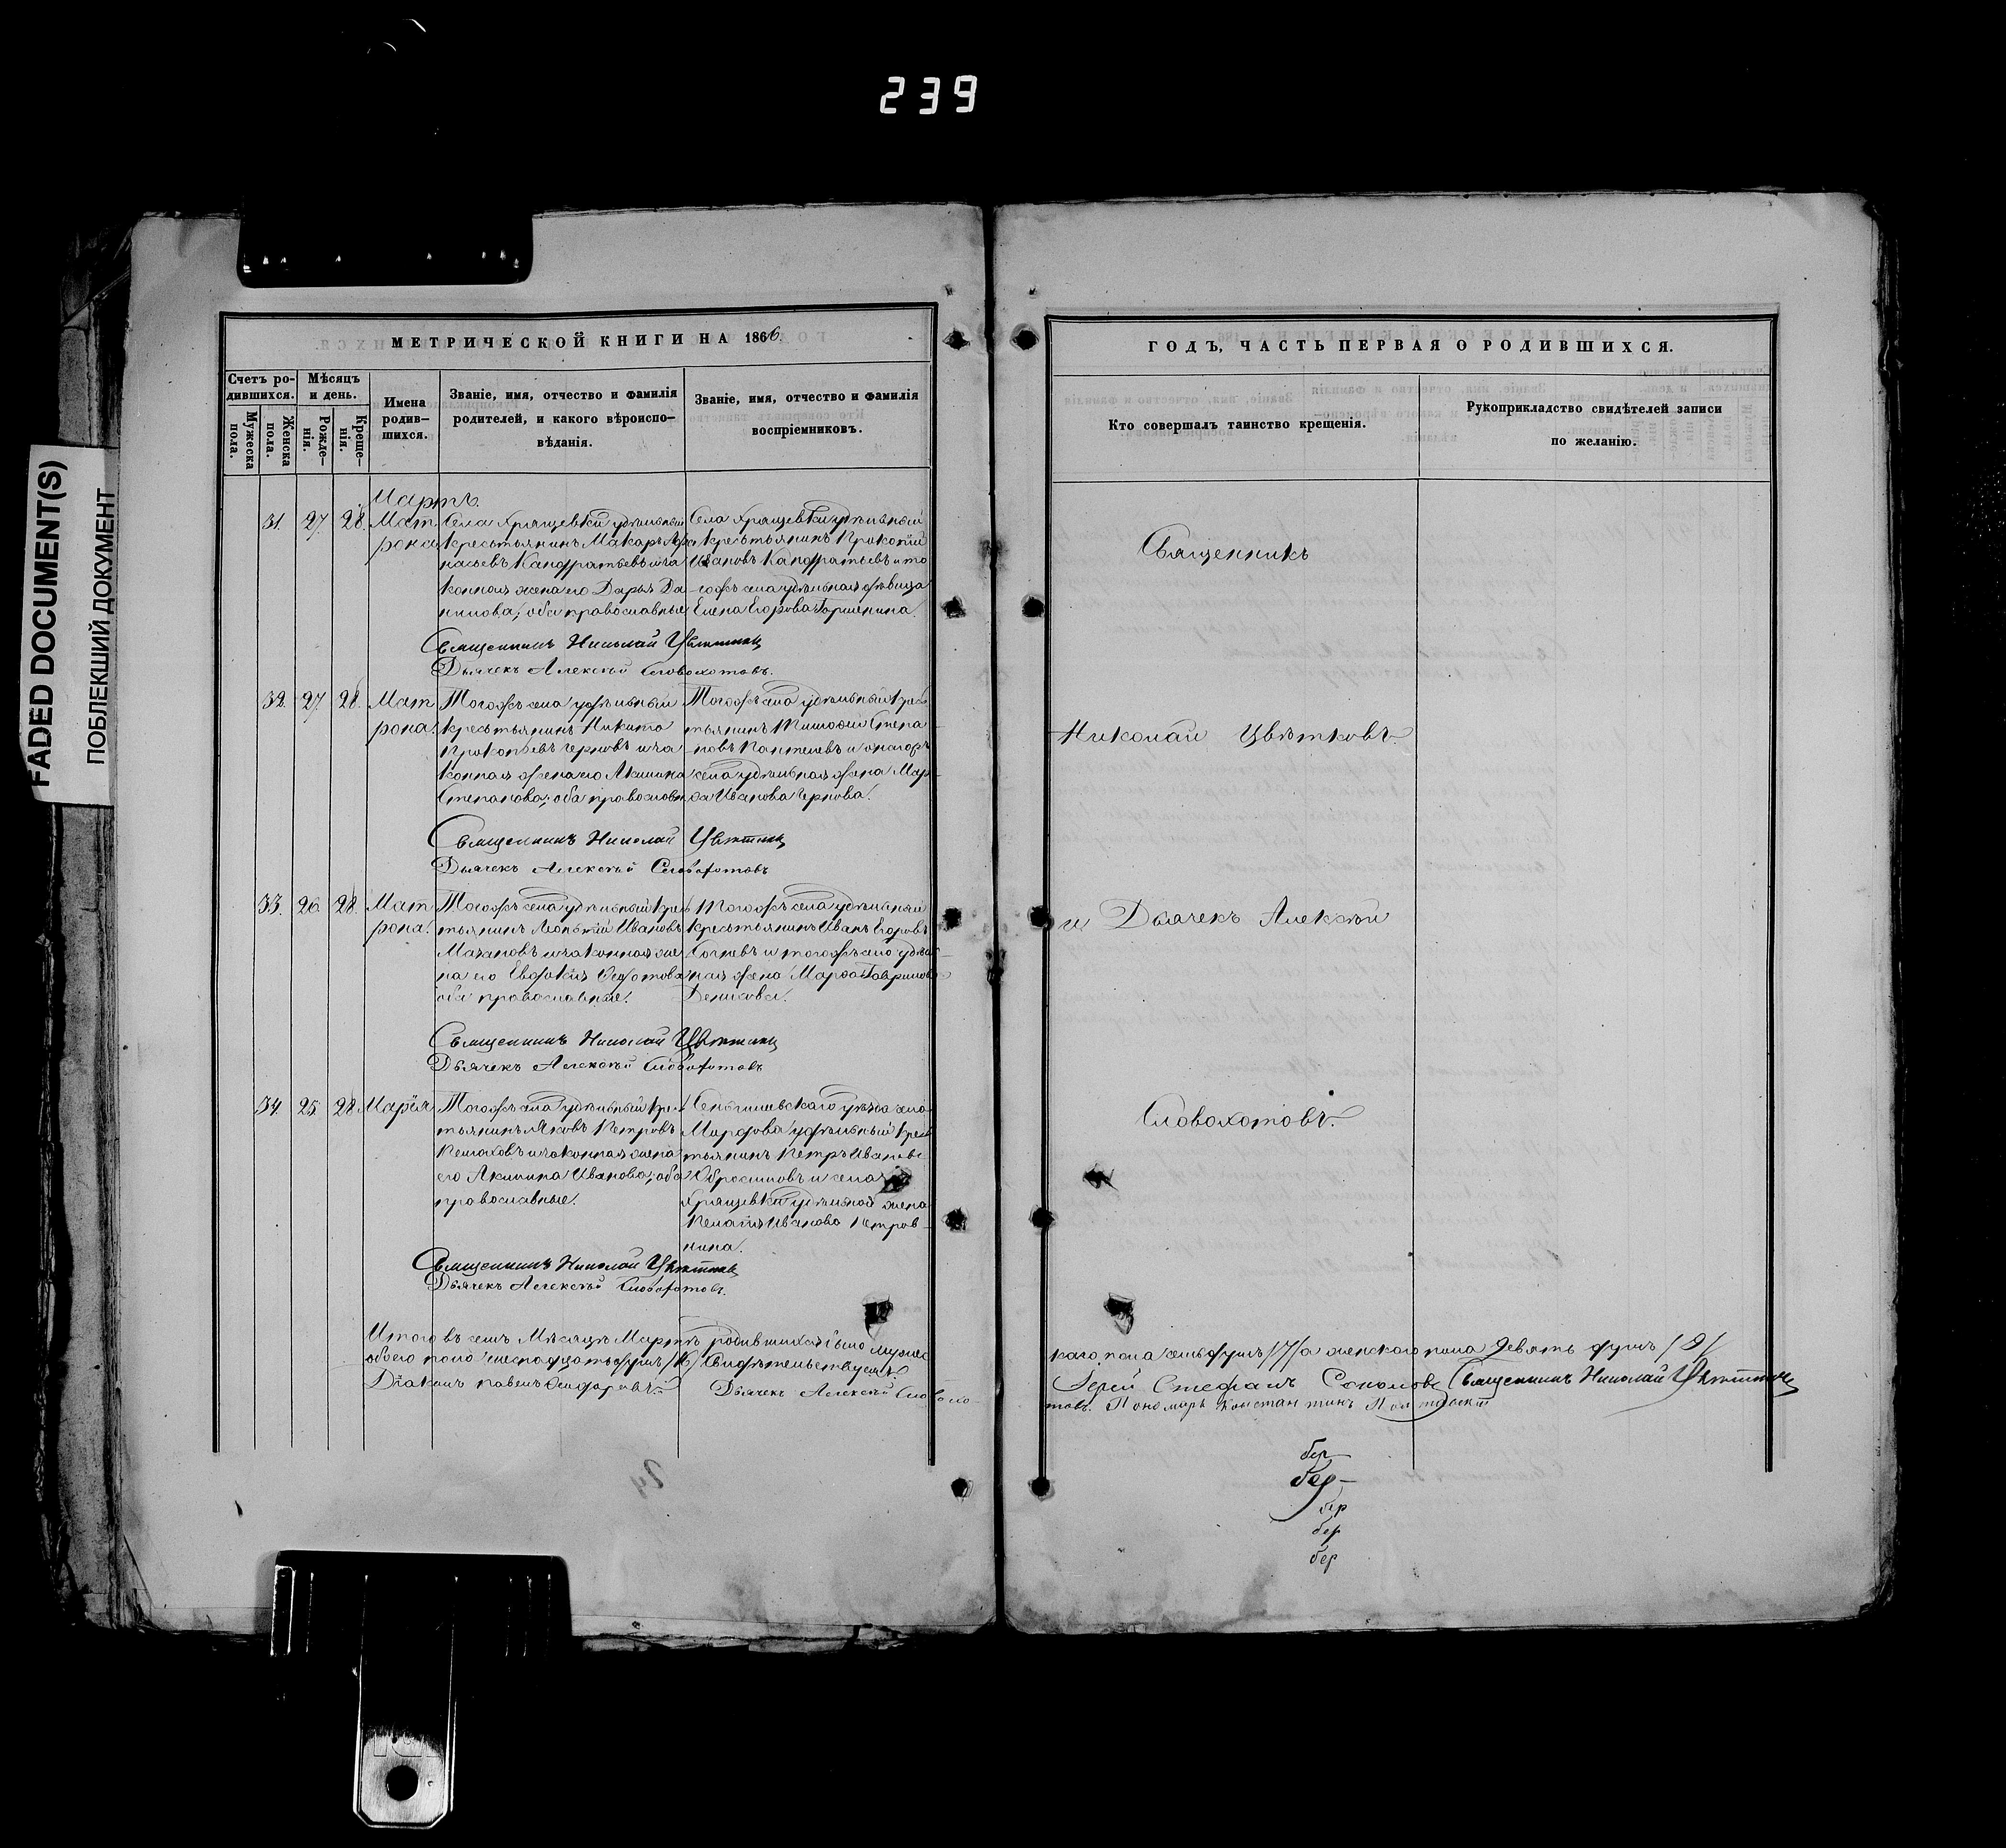 239
FADED DOCUMENT(S)
ПОБЛЕКШИЙ ДОКУМЕНТ
МЕТРИЧЕСКОЙ КНИГИ НА 1866
Счетъ ро-
дившихся.
Мужеска
пола.
Женска
пола.
Мѣсяцъ
и день.
Рожде-
нія.
Креще-
нія.
Имена
родив-
шихся.
Званіе, имя, отчество и фамилія
родителей, и какого вѣроиспо-
вѣданія.
Званіе, имя, отчество и фамилія
воспріемниковъ.
Мартъ.
31. 27. 28.
Мат
рона
Села Хрящевки удѣльный
крестьянинъ Макаръ Афа
насьевъ Кандратьевъ и за
конная жена его Дарья Да
нилова, оба православные
Села Хрящевки удѣльный
крестьянинъ Прокопій
Ивановъ Кандратьевъ и то
гожъ села удѣльная дѣвица
Елена Егорова Гаршенина.
Священникъ Николай Цвѣтковъ
Дьячекъ Алексѣй Словохотовъ.
32. 27. 28.
Мат
рона.
Тогожъ села удѣльный
крестьянинъ Никита
Прокопьевъ Черновъ и за
конная жена его Акилина
Степанова; оба православн
Тогожъ села удѣльный крес
тьянинъ Тимофей Степа
новъ Пантелевъ и тогожъ
села удѣльная жена Мар
Иванова Чернова.
Священникъ Николай Цвѣтковъ
Дьячекъ Алексѣй Словохотовъ
33. 26. 28.
Мат
рона.
Тогожъ села удѣльный крес
тьянинъ Леонтій Ивановъ
Мазановъ и законная же
на его Евдокія Федотова
оба православные.
Тогожъ села удѣльный
крестьянинъ Иванъ Егоровъ
и тогожъ села удѣль
ная жена Марфа Гаврилова
Денисова.
Священникъ Николай Цвѣтковъ
Дьячекъ Алексѣй Словохотовъ
34. 25. 28.
Марія
Тогожъ села удѣльный крес
тьянинъ Яковъ Петровъ
и законная жена
его Акилина Иванова; оба
православные.
Сенгилеевскаго уѣзда села
удѣльный крес
тьянинъ Петръ Ивановъ
Абросимовъ и села
Хрящевки удѣльная жена
Пелагія Иванова Петров
нина.
Священникъ Николай Цвѣтковъ
Дьячекъ Алексѣй Словохотовъ.
Итого въ семъ Мѣсяцѣ Мартѣ родившихся было мужес
обоего пола шеснадцать душъ /16/ Свидѣтельствуемъ
Діаконъ Павелъ
Дьячекъ Алексѣй Словохо
24
ГОДЪ, ЧАСТЬ ПЕРВАЯ О РОДИВШИХСЯ.
Кто совершалъ таинство крещенія.
Рукоприкладство свидѣтелей записи
по желанію.
Священникъ
Николай Цвѣтковъ
и Дьячекъ Алексѣй
Словохотовъ.
каго пола семь душъ /7/ а женскаго пола девять душъ /9/
Іерей Стефанъ Соколовъ Священникъ Николай Цвѣтковъ
товъ. Пономарь Константинъ
бер
бер
бер
бер
бер